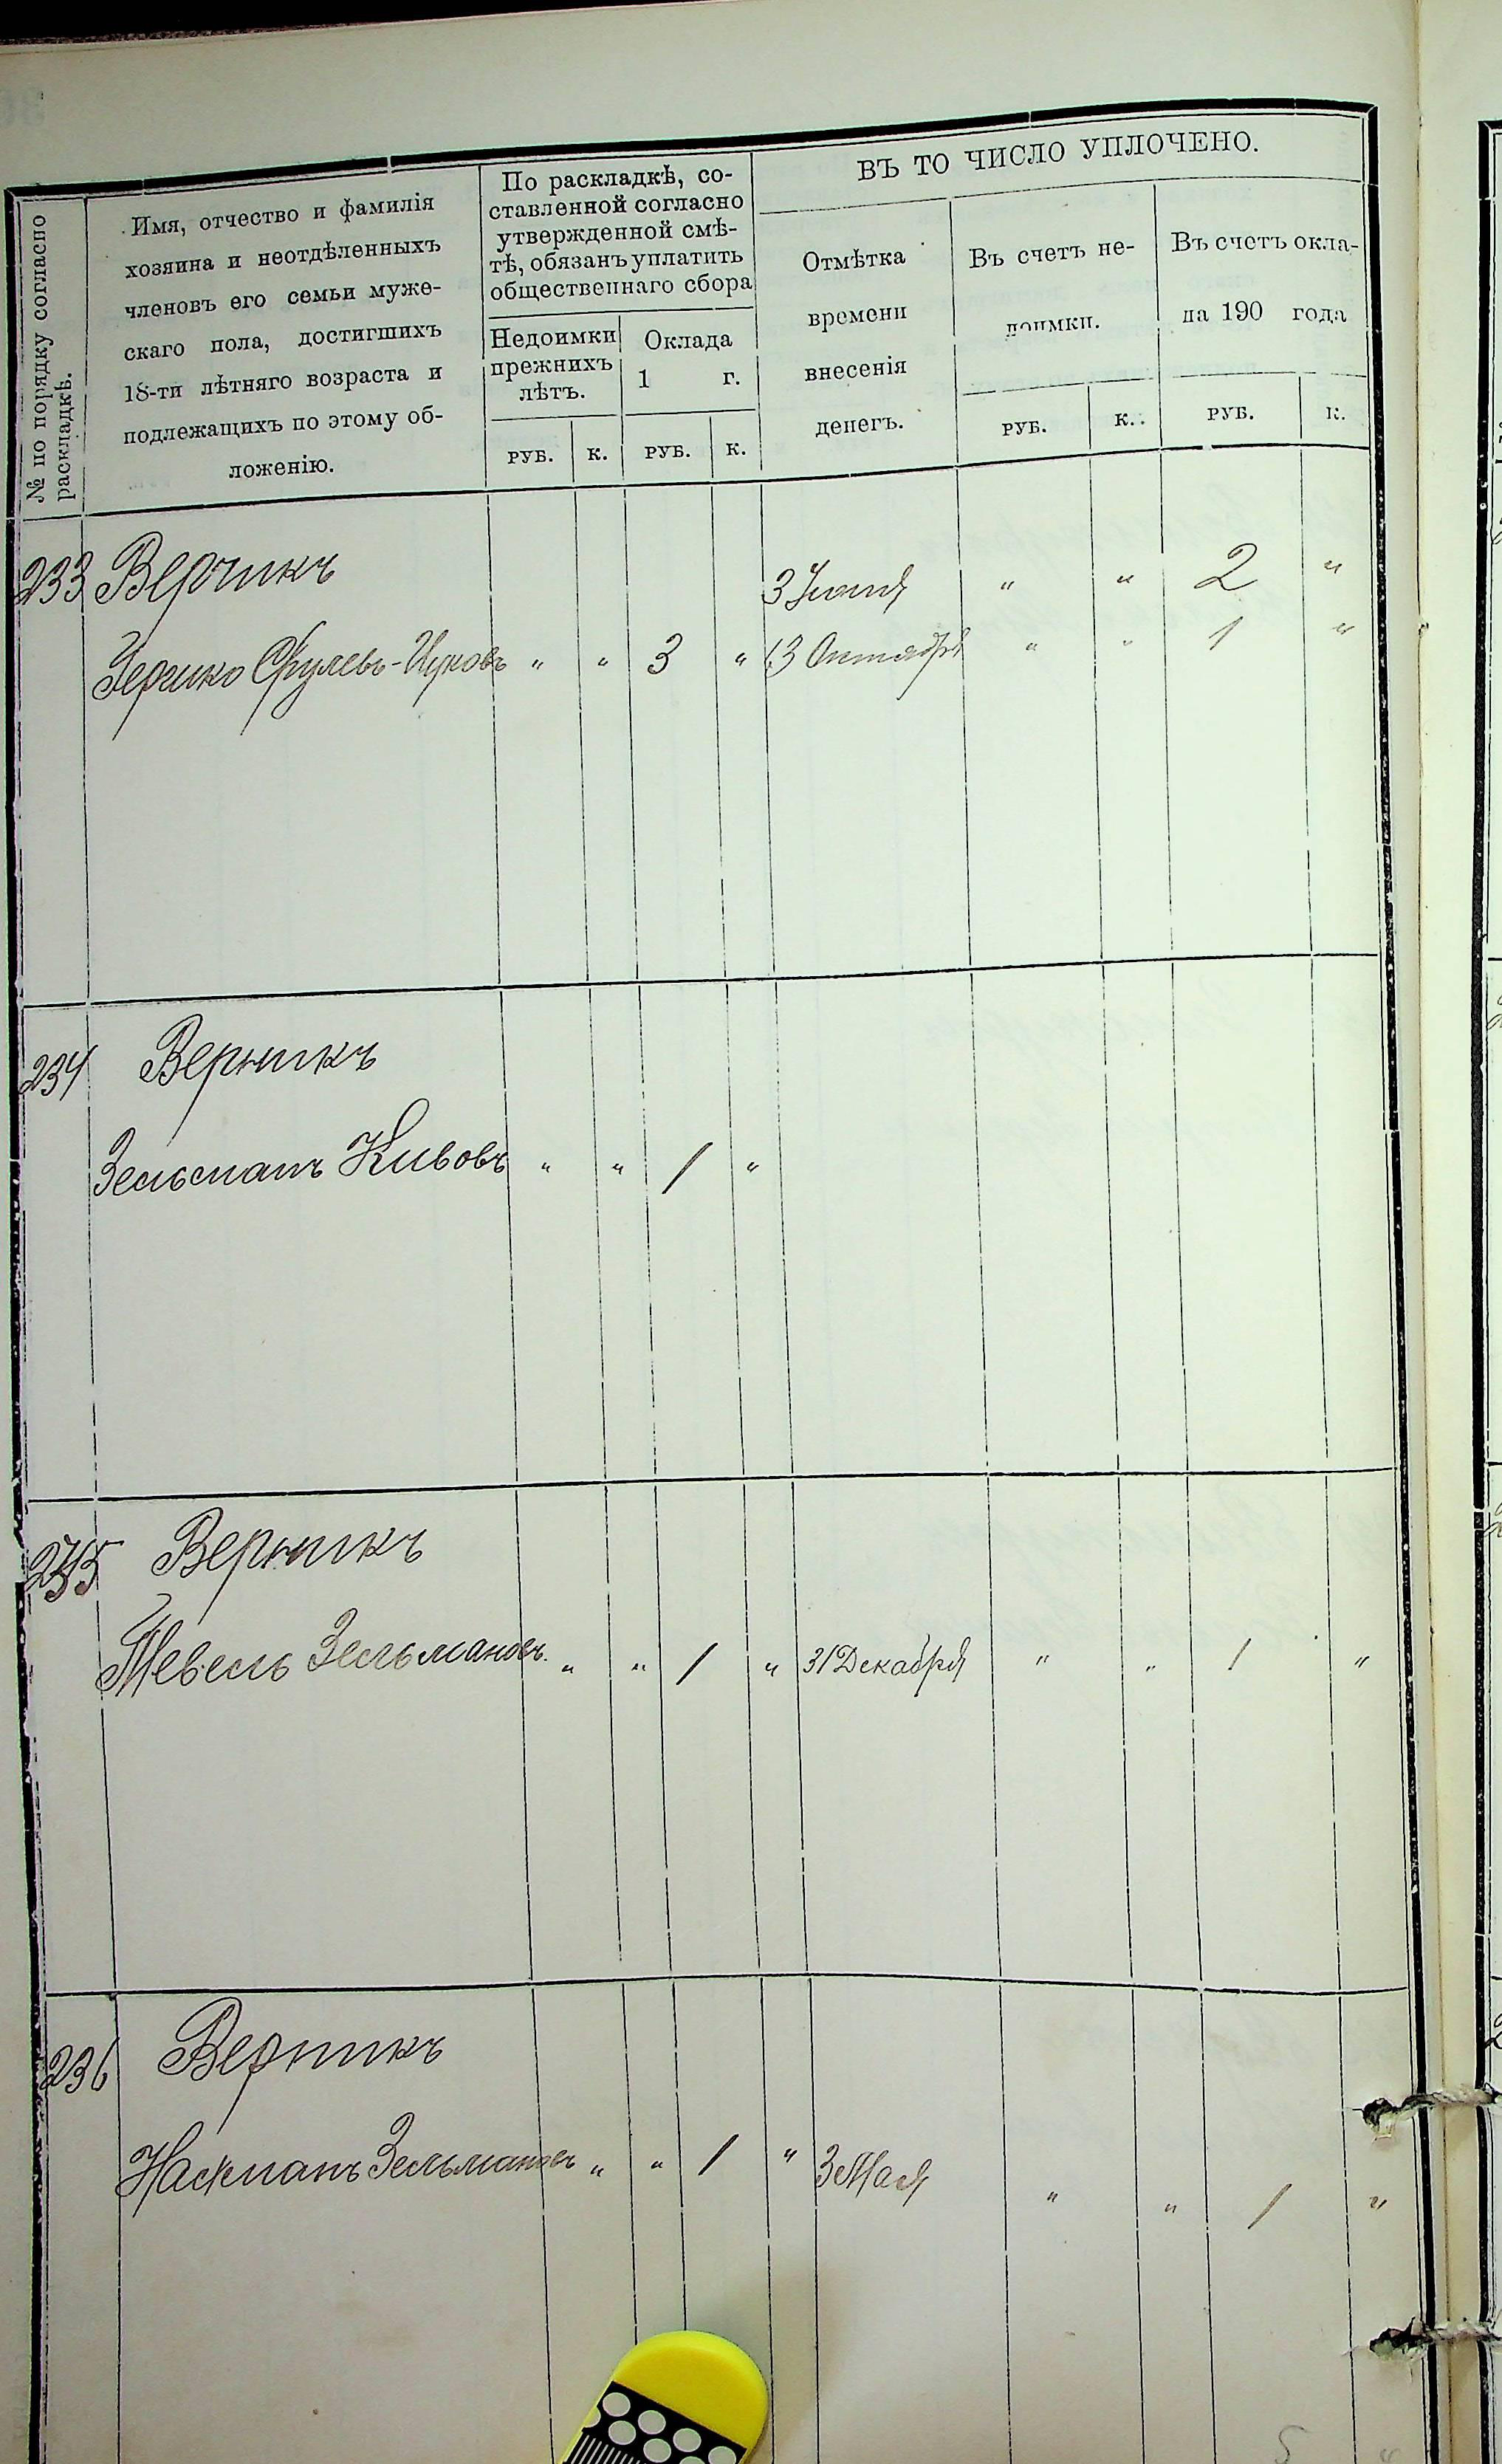 № по порядку согласно
раскладкѣ.
Имя, отчество и фамилія
хозяина и неотдѣленныхъ
членовъ его семьи муже-
скаго пола, достигшихъ
18-ти лѣтняго возраста и
подлежащихъ по этому об-
ложенію.
По раскладкѣ, со-
ставленной согласно
утвержденной смѣ-
тѣ, обязанъ уплатить
общественнаго сбора
Недоимки
прежнихъ
лѣтъ.
Оклада
1 г.
РУБ. К. РУБ. К.
ВЪ ТО ЧИСЛО УПЛОЧЕНО.
Отмѣтка
времени
внесенія
денегъ.
Въ счетъ не-
доимки.
РУБ. К.
Въ счетъ окла-
да 190 года
РУБ. К.
233 Верникъ 3 Іюня " " 2 "
" " 3 " 13 Октября " " 1 "
234 Верникъ
Зельманъ Кивовъ " " 1 "
235 Верникъ
Тевель Зельмановъ. " " 1 " 31 Декабря " " 1 "
236 Верникъ
Нахманъ Зельмановъ " " 1 " 3 Мая " " 1 "
5 "